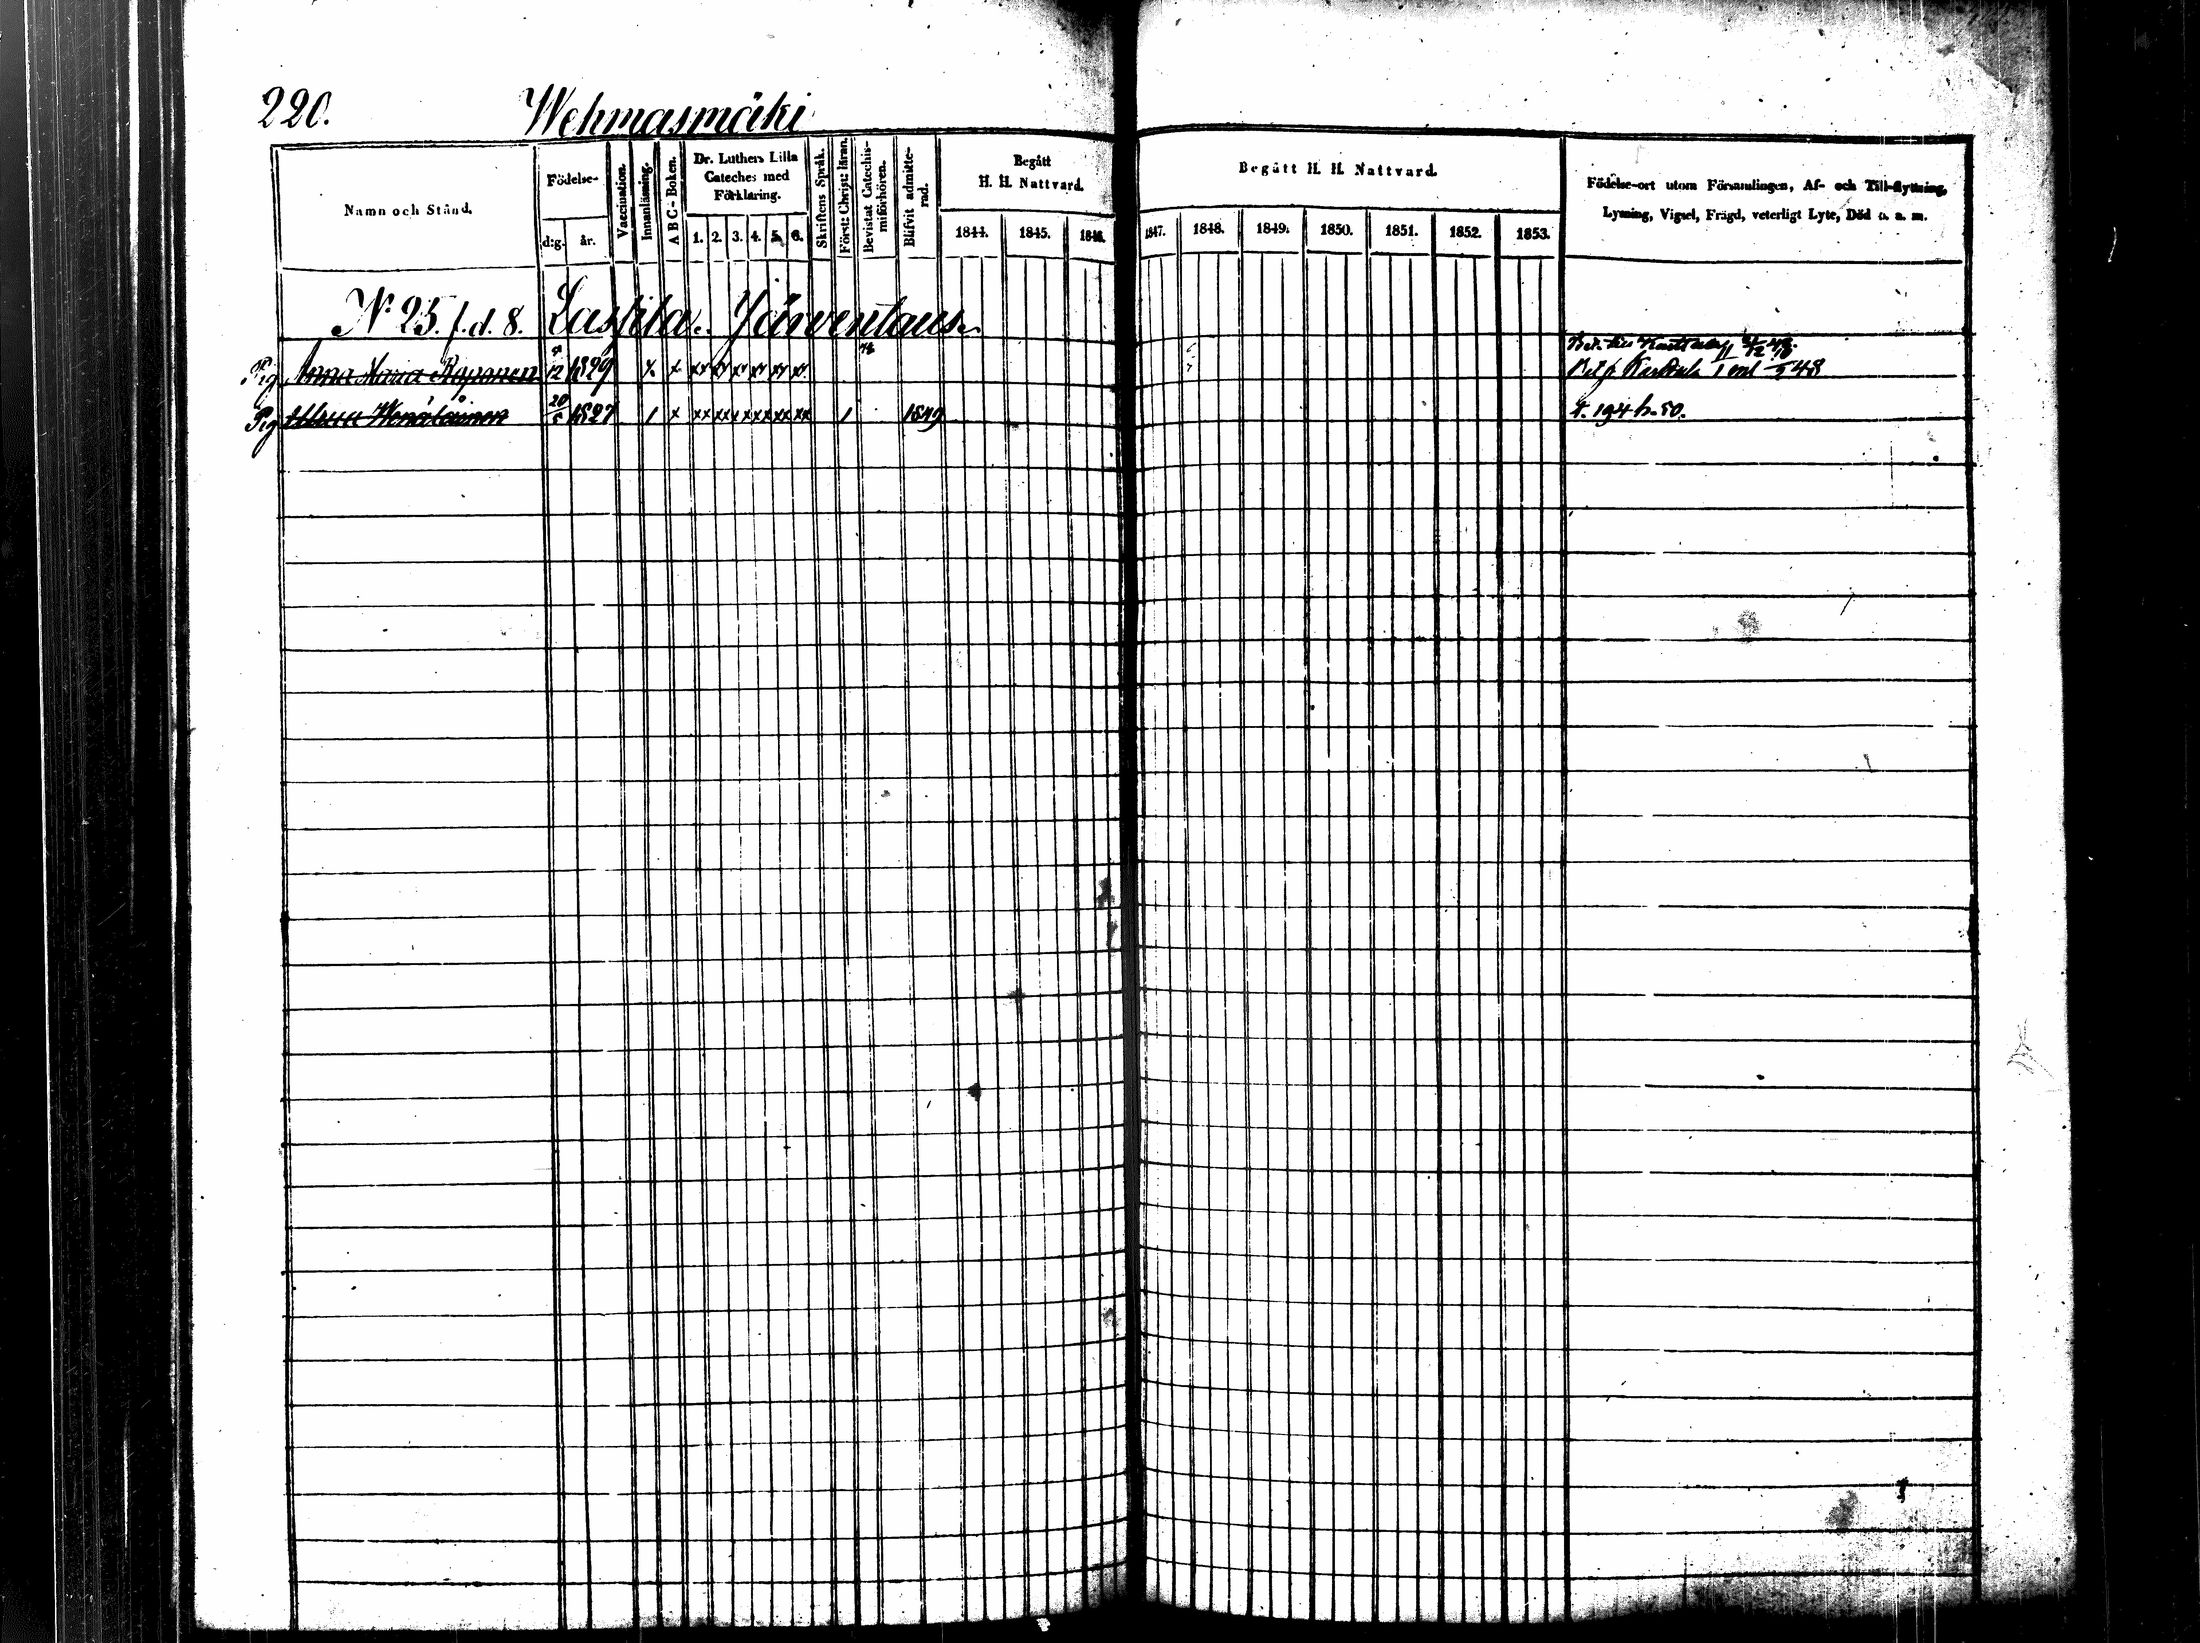 220. Wehmasmäki
Namn och Stånd.
Födelse-
d:g. år.
Vaccination.
Innanläsning.
A B C-Boken.
Dr. Luthers Lilla
Cateches med
Förklaring.
1. 2. 3. 4. 5. 6.
Skriftens Språk.
Först: Christ: läran.
Bevistat Catechis-
miförhören.
Blifvit admitte-
rad.
Begått
H. H. Nattvard.
1844. 1845. 1846.
Begått H. H. Nattvard.
1847. 1848. 1849. 1850. 1851. 1852. 1853.
Födelse-ort utom Församlingen, Af- och Till-flyttning,
Lysning, Vigsel, Frägd, veterligt Lyte, Död o. s. m.
No 25. f.d. 8. Järventaus.
Pig Anna Maria Roponen 12 1829 x x xx xx xx xx xx xx
Pig 20/5 1827 1 x xx xx xx xx xx xx 1 1849
t. 194 h. 50.